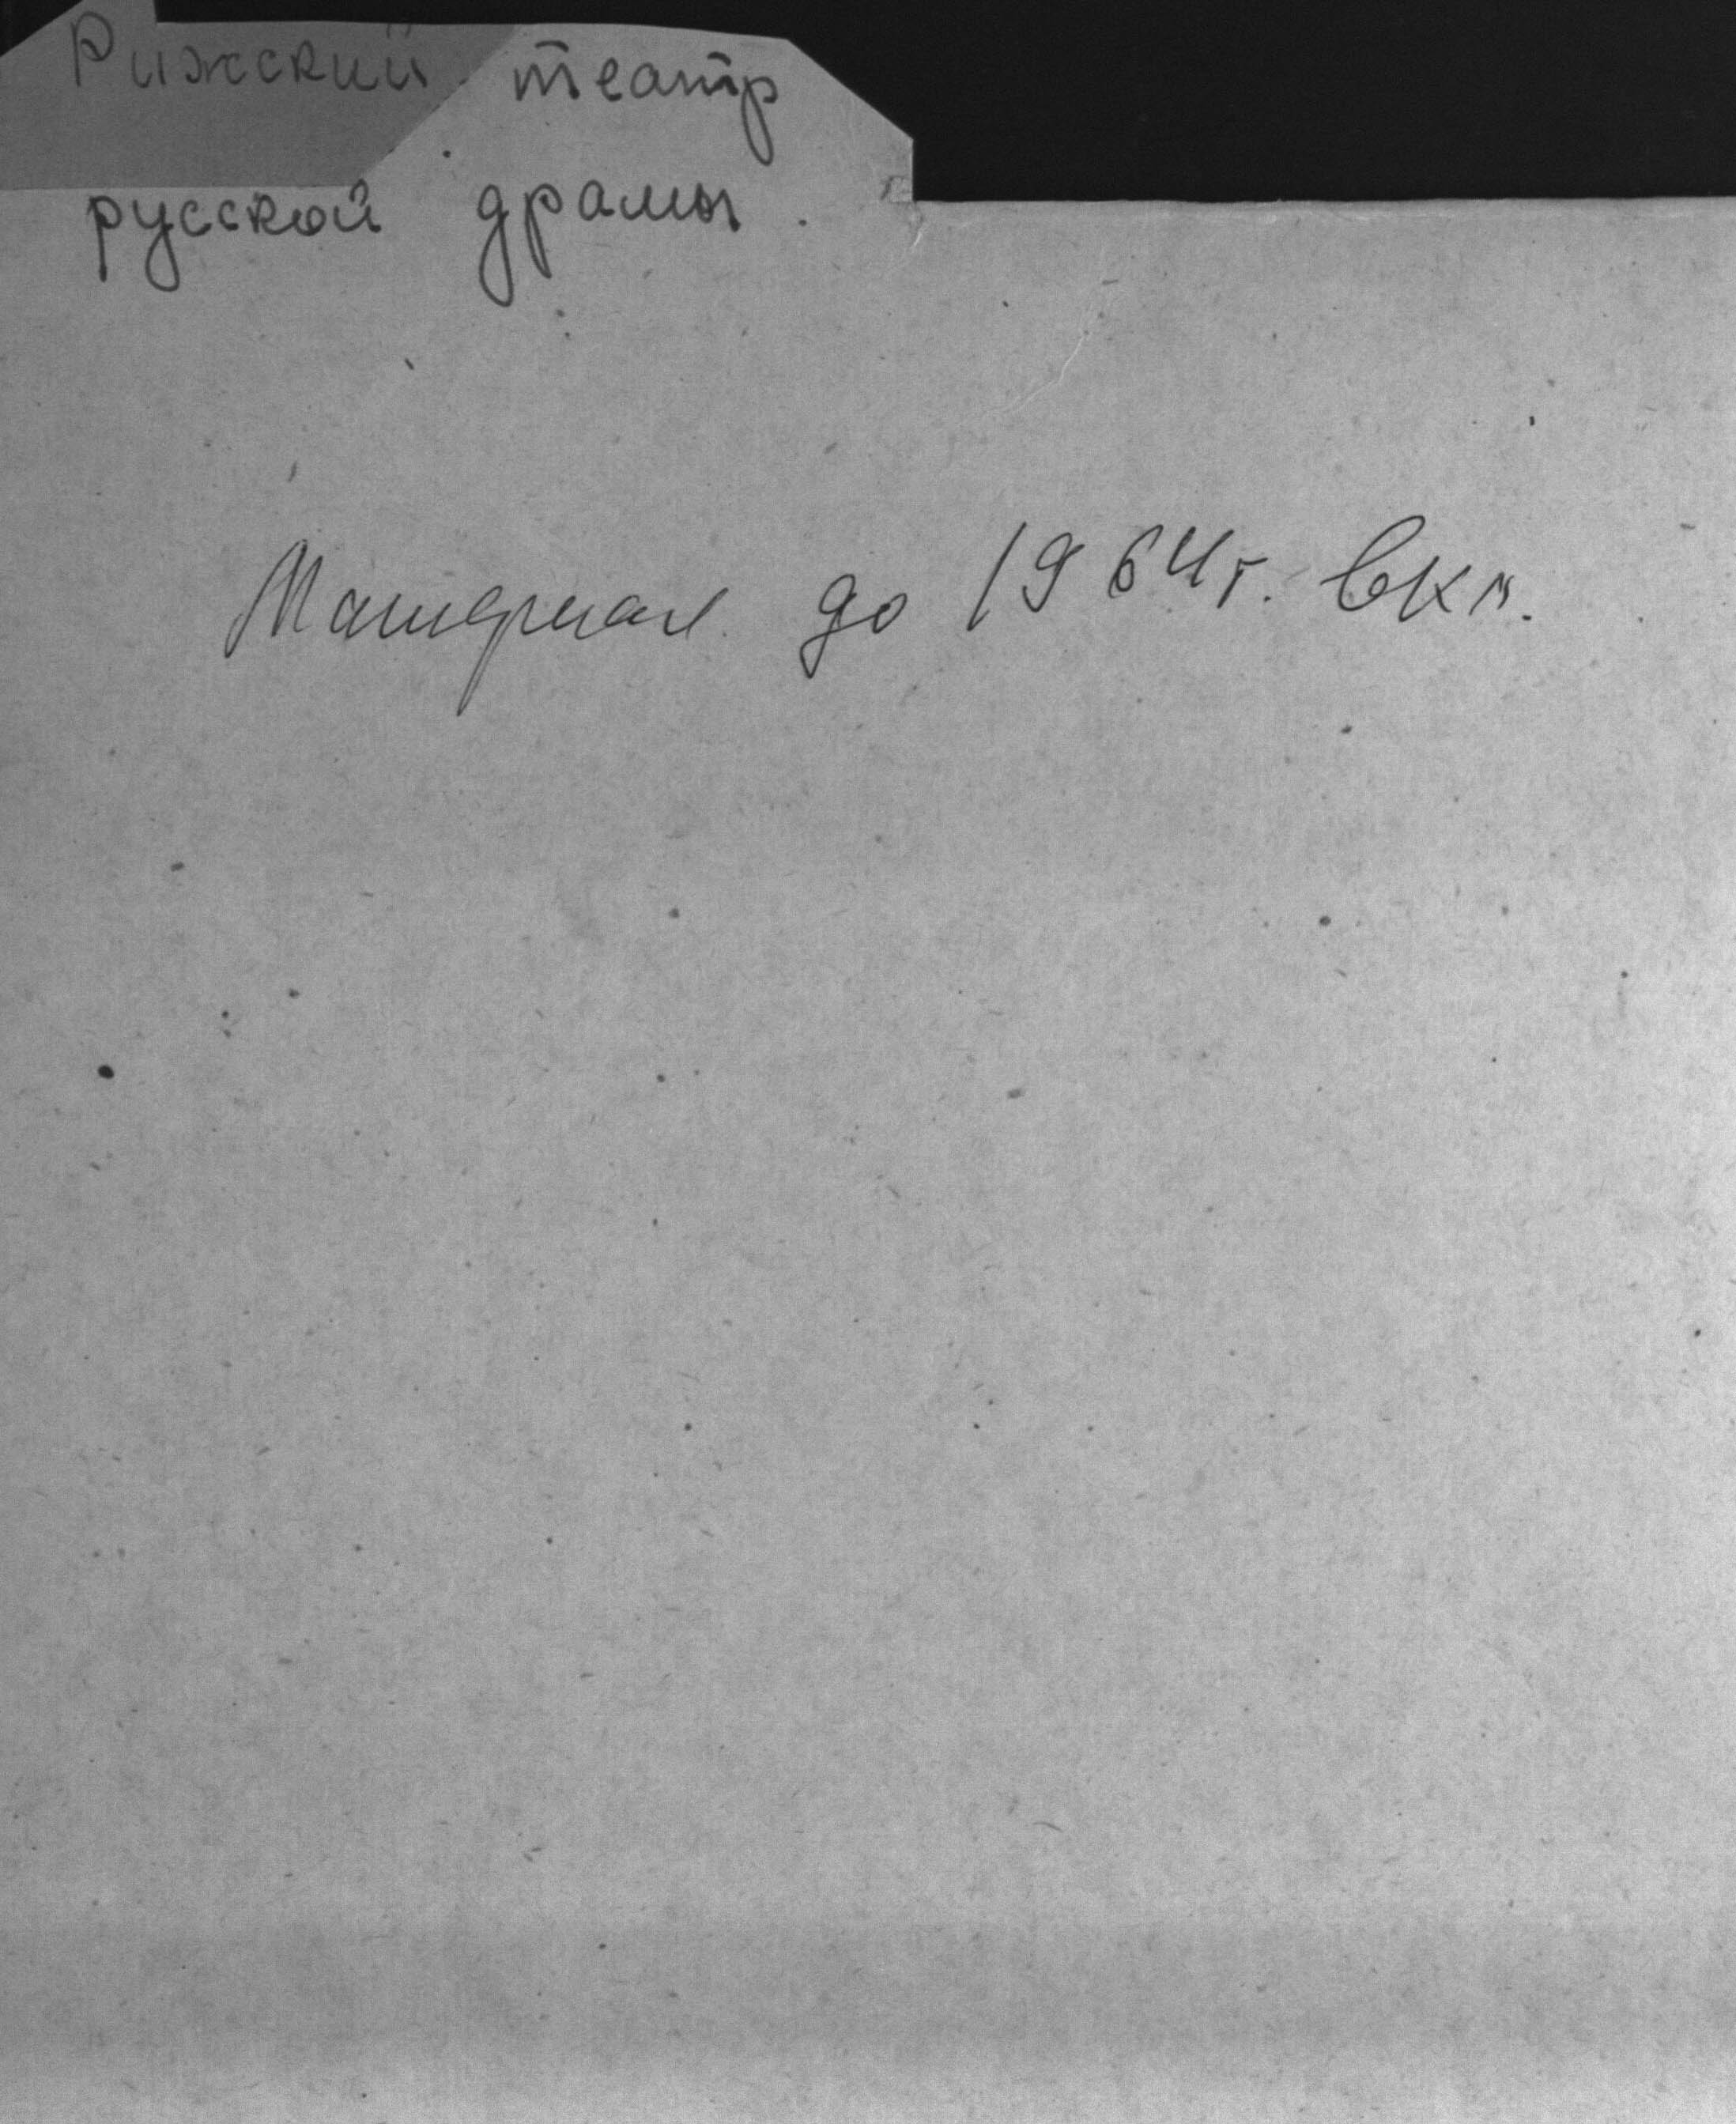 Рижский театр
русской драмы.
Материал до 1964г. вкл.